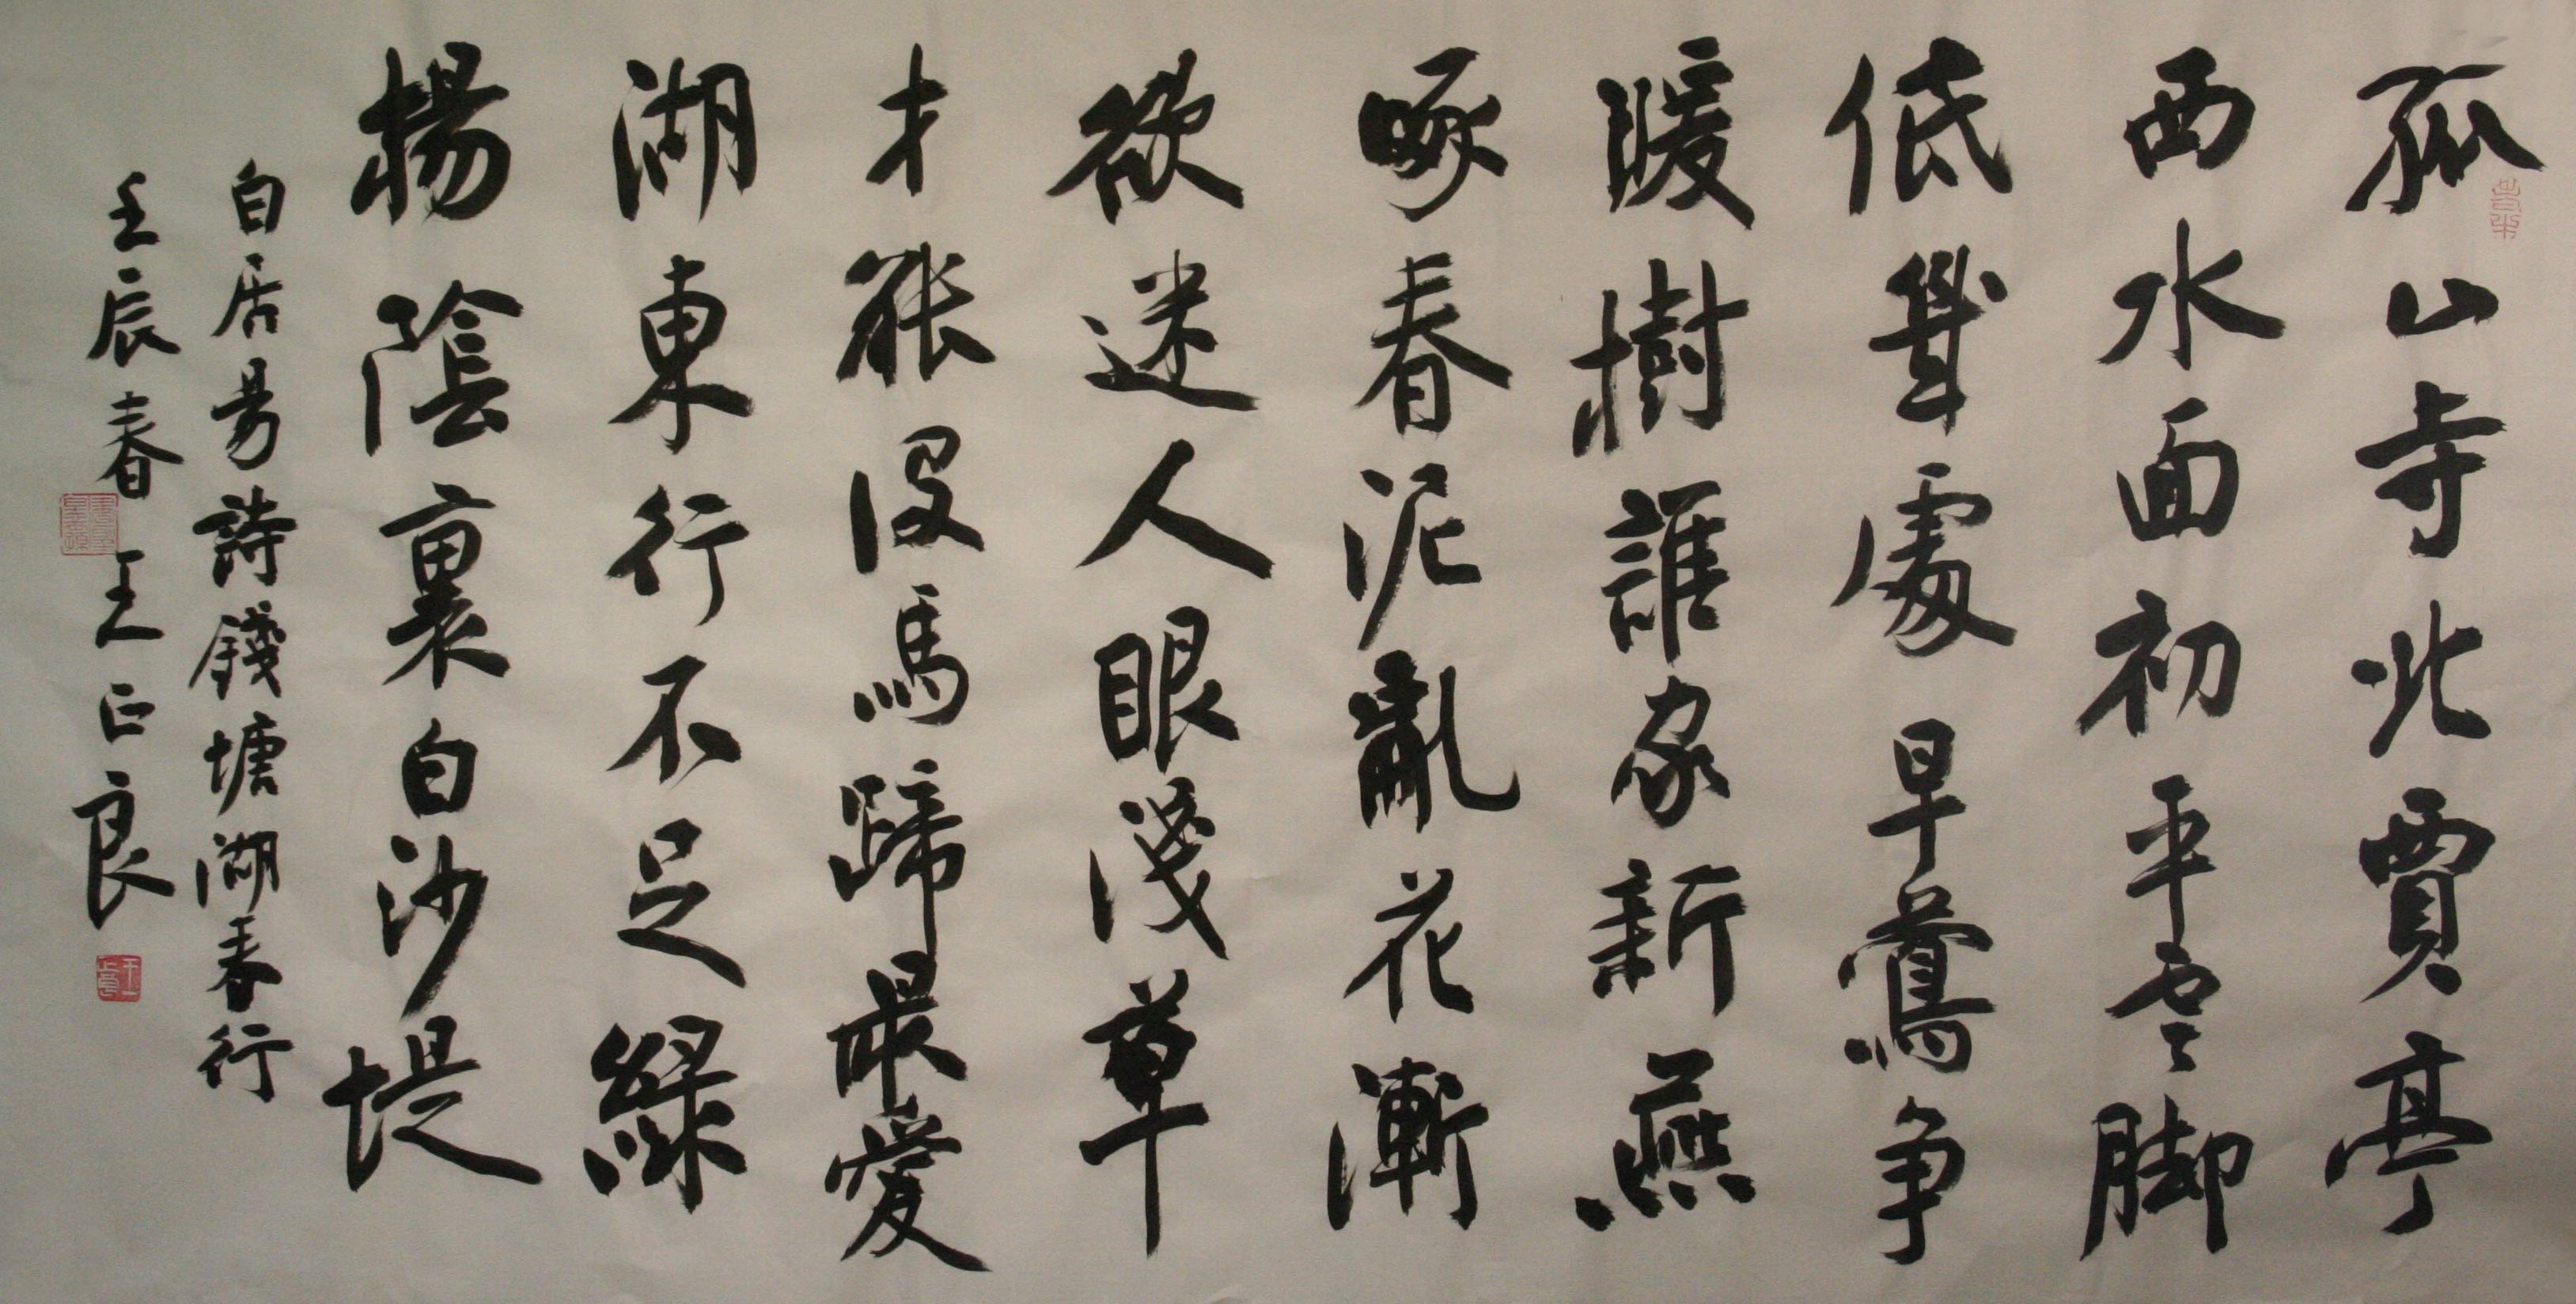 孤山寺北賈亭
西水面初平雲脚
低幾處早鶯争
暖樹誰家新燕
啄春泥亂花漸
欲迷人眼淺草
才能没馬蹄最愛
湖東行不足綠
楊陰裏白沙堤
白居易詩錢塘湖春行
壬辰春王正良